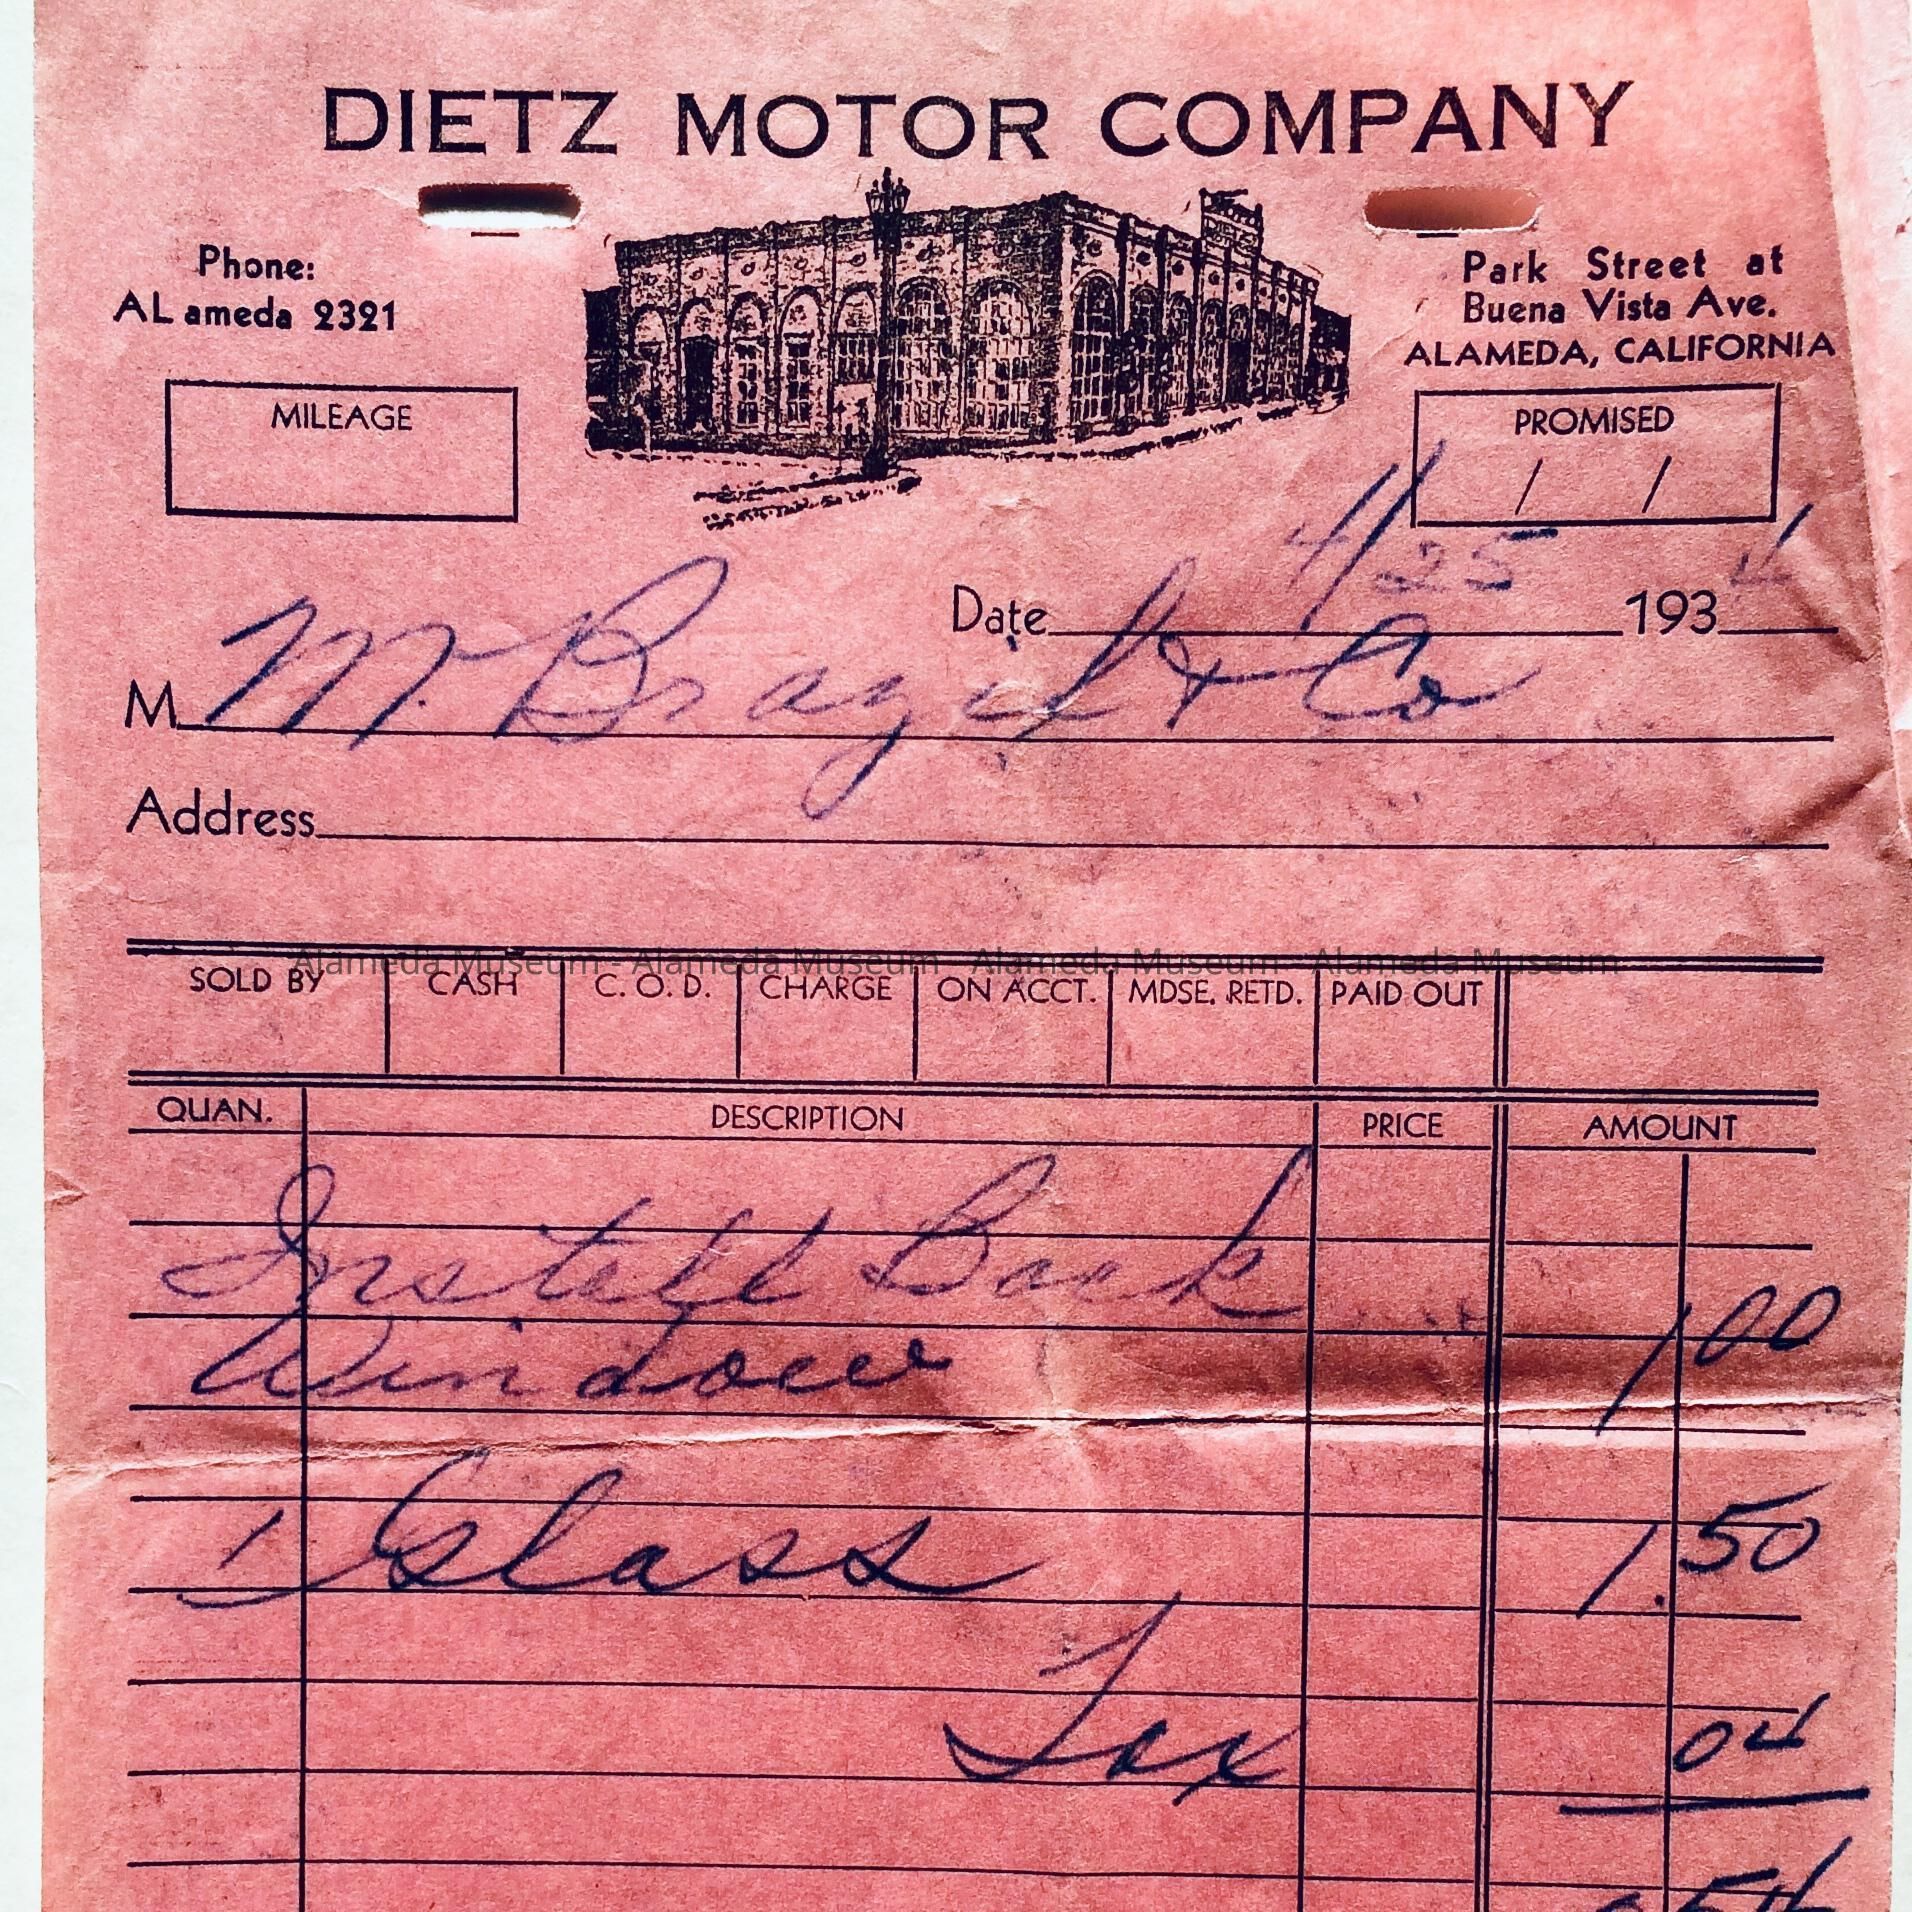 DIETZ MOTOR COMPANY
Phone:
ALameda 2321
Park Street at
Buena Vista Ave.
ALAMEDA, CALIFORNIA
MILEAGE
PROMISED
/ /
Date 4/25 1934
M M. Brazil & Co
Address
Alameda Museum - Alameda Museum - Alameda Museum - Alameda Museum
SOLD BY CASH C. O. D. CHARGE ON ACCT. MDSE. RETD. PAID OUT
QUAN. DESCRIPTION PRICE AMOUNT
Install Back
Window 1 00
1 Glass 1.50
Tax 04